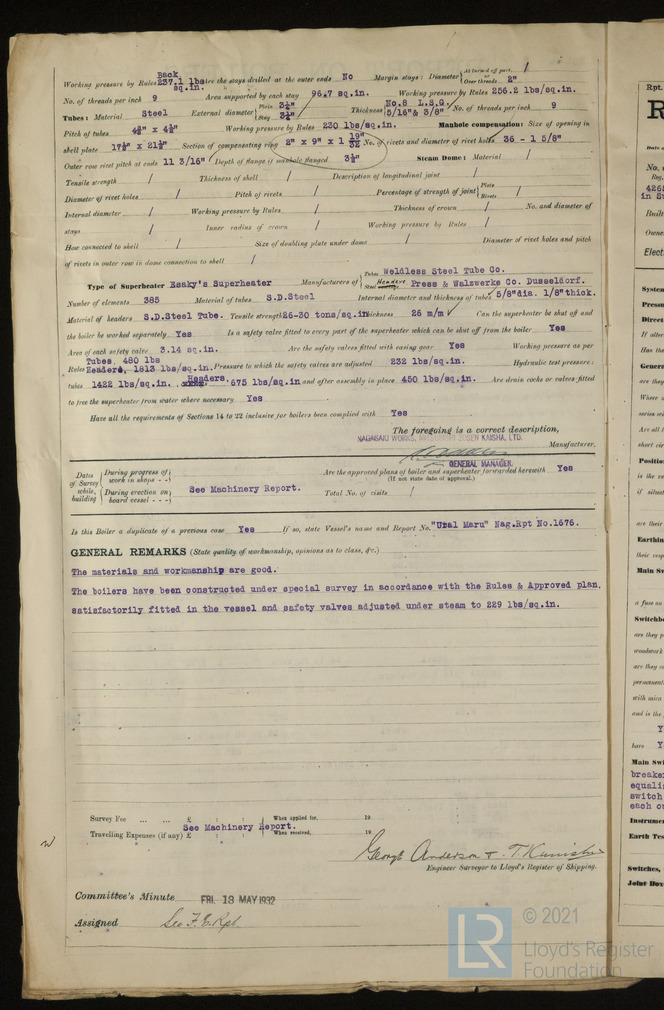 Working pressure by Rules Back 237.1 lbs sq.in. Are the stays drilled at the outer ends No Margin stays: Diameter { At turned off part, / or Over threads 2"
No. of threads per inch 9 Area supported by each stay 96.7 sq.in. Working pressure by Rules 256.2 lbs/sq.in.
Tubes: Material Steel External diameter { Plain 3¼" Stay 3¼" Thickness { No.8 L.S.G. 5/16" & 3/8" No. of threads per inch 9
Pitch of tubes 4½" x 4½" Working pressure by Rules 230 lbs/sq.in. Manhole compensation: Size of opening in
shell plate 17½" x 21½" Section of compensating ring 2" x 9" x 1 19/32" No. of rivets and diameter of rivet holes 36 - 1 5/8"
Outer row rivet pitch at ends 11 3/16" Depth of flange if manhole flanged 3½" Steam Dome: Material /
Tensile strength / Thickness of shell / Description of longitudinal joint /
Diameter of rivet holes / Pitch of rivets / Percentage of strength of joint { Plate Rivets /
Internal diameter / Working pressure by Rules / Thickness of crown / No. and diameter of
stays / Inner radius of crown / Working pressure by Rules /
How connected to shell / Size of doubling plate under dome / Diameter of rivet holes and pitch
of rivets in outer row in dome connection to shell /
Type of Superheater Esaky's Superheater Manufacturers of { Tubes Weldless Steel Tube Co. Steel Headers Press & Walzwerke Co. Dusseldorf.
Number of elements 385 Material of tubes S.D.Steel Internal diameter and thickness of tubes 5/8"dia. 1/8"thick.
Material of headers S.D.Steel Tube. Tensile strength 26-30 tons/sq.in Thickness 26 m/m Can the superheater be shut off and
the boiler be worked separately Yes Is a safety valve fitted to every part of the superheater which can be shut off from the boiler Yes
Area of each safety valve 3.14 sq.in. Are the safety valves fitted with easing gear Yes Working pressure as per
Rules Tubes, 480 lbs Headers, 1813 lbs/sq.in. Pressure to which the safety valves are adjusted 232 lbs/sq.in. Hydraulic test pressure:
tubes 1422 lbs/sq.in. Headers 675 lbs/sq.in and after assembly in place 450 lbs/sq.in. Are drain cocks or valves fitted
to free the superheater from water where necessary Yes
Have all the requirements of Sections 14 to 22 inclusive for boilers been complied with Yes
The foregoing is a correct description,
NAGASAKI WORKS, MITSUBISHI ZOSEN KAISHA, LTD.
Manufacturer.
GENERAL MANAGER.
Dates of Survey while building { During progress of work in shops - - During erection on board vessel - - - See Machinery Report.
Are the approved plans of boiler and superheater forwarded herewith Yes
(If not state date of approval.)
Total No. of visits /
Is this Boiler a duplicate of a previous case Yes If so, state Vessel's name and Report No. "Ural Maru" Nag.Rpt No.1676.
GENERAL REMARKS (State quality of workmanship, opinions as to class, &c.)
The materials and workmanship are good.
The boilers have been constructed under special survey in accordance with the Rules & Approved plan,
satisfactorily fitted in the vessel and safety valves adjusted under steam to 229 lbs/sq.in.
Survey Fee ... ... £ : : When applied for, 19
See Machinery Report.
Travelling Expenses (if any) £ : : When received, 19
George Anderson & T.
Engineer Surveyor to Lloyd's Register of Shipping.
Committee's Minute FRI. 13 MAY 1932
Assigned See F.E. Rpt.
LR
© 2021
Lloyd's Register
Foundation
Rpt.
R
Date
No.
Reg.
4265
in Su
Built
Owne
Elect
System
Pressu
Direct
If alter
Has the
Genera
are they
Where
series
Are all
short cir
Positio
is the ve
if situat
are their
Earthin
their vesp
Main Sw
a fuse on
Switchbo
are they p
woodwork
are they co
permanent
with mica
and is the
Y
have Y
Main Swi
breake
equali
switch
each o
Instrumen
Earth Tes
Switches,
Joint Box